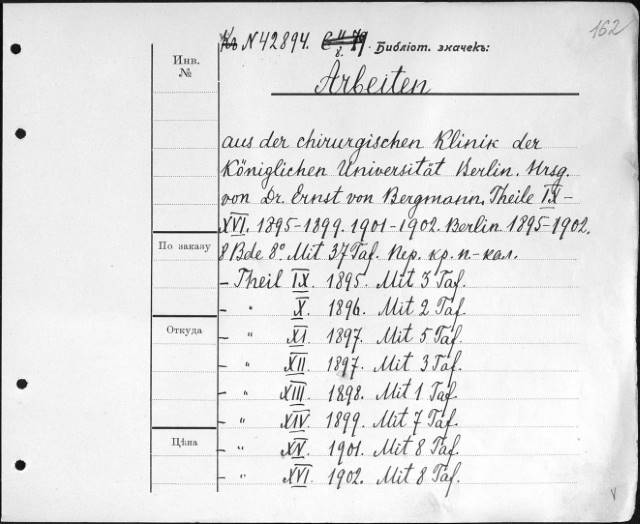 162
N 42894. Библіот. значекъ:
Инв.
№
Arbeiten
aus der chirurgischen Klinik der
Königlichen Universität Berlin. Hrsg.
von Dr. Ernst von Bergmann. Theile IX-
XVI. 1895-1899. 1901-1902. Berlin 1895-1902.
По заказу
8 Bde 8º. Mit 37 Taf. Пер. кр. п-кал.
- Theil IX. 1895. Mit 3 Taf.
- " X. 1896. Mit 2 Taf.
Откуда
- " XI. 1897. Mit 5 Taf.
- " XII. 1897. Mit 3 Taf.
- " XIII. 1898. Mit 1 Taf.
- " XIV. 1899. Mit 7 Taf.
Цѣна
- " XV. 1901. Mit 8 Taf.
- " XVI. 1902. Mit 8 Taf.
V